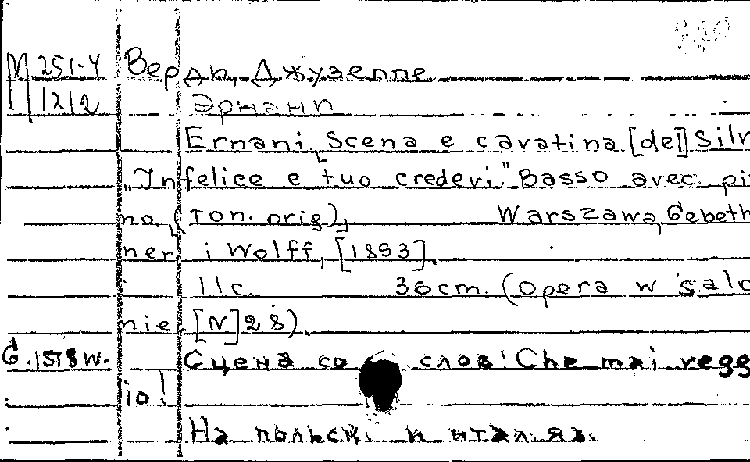 М 251-4 Верди, Джузеппе
М 1212 Эрнани
Ernani, Scena e cavatina [de] Silv
„Infelice e tuo credevi." Basso avec pia
no, (ton. orig), Warszawa, Gebeth
ner i Wolff, [1893].
11c. 36cm. (Opera w salo
nie [N]28).
G.1518W. Сцена со слов: Che mai vegg
io!
На польск. и итал. яз.